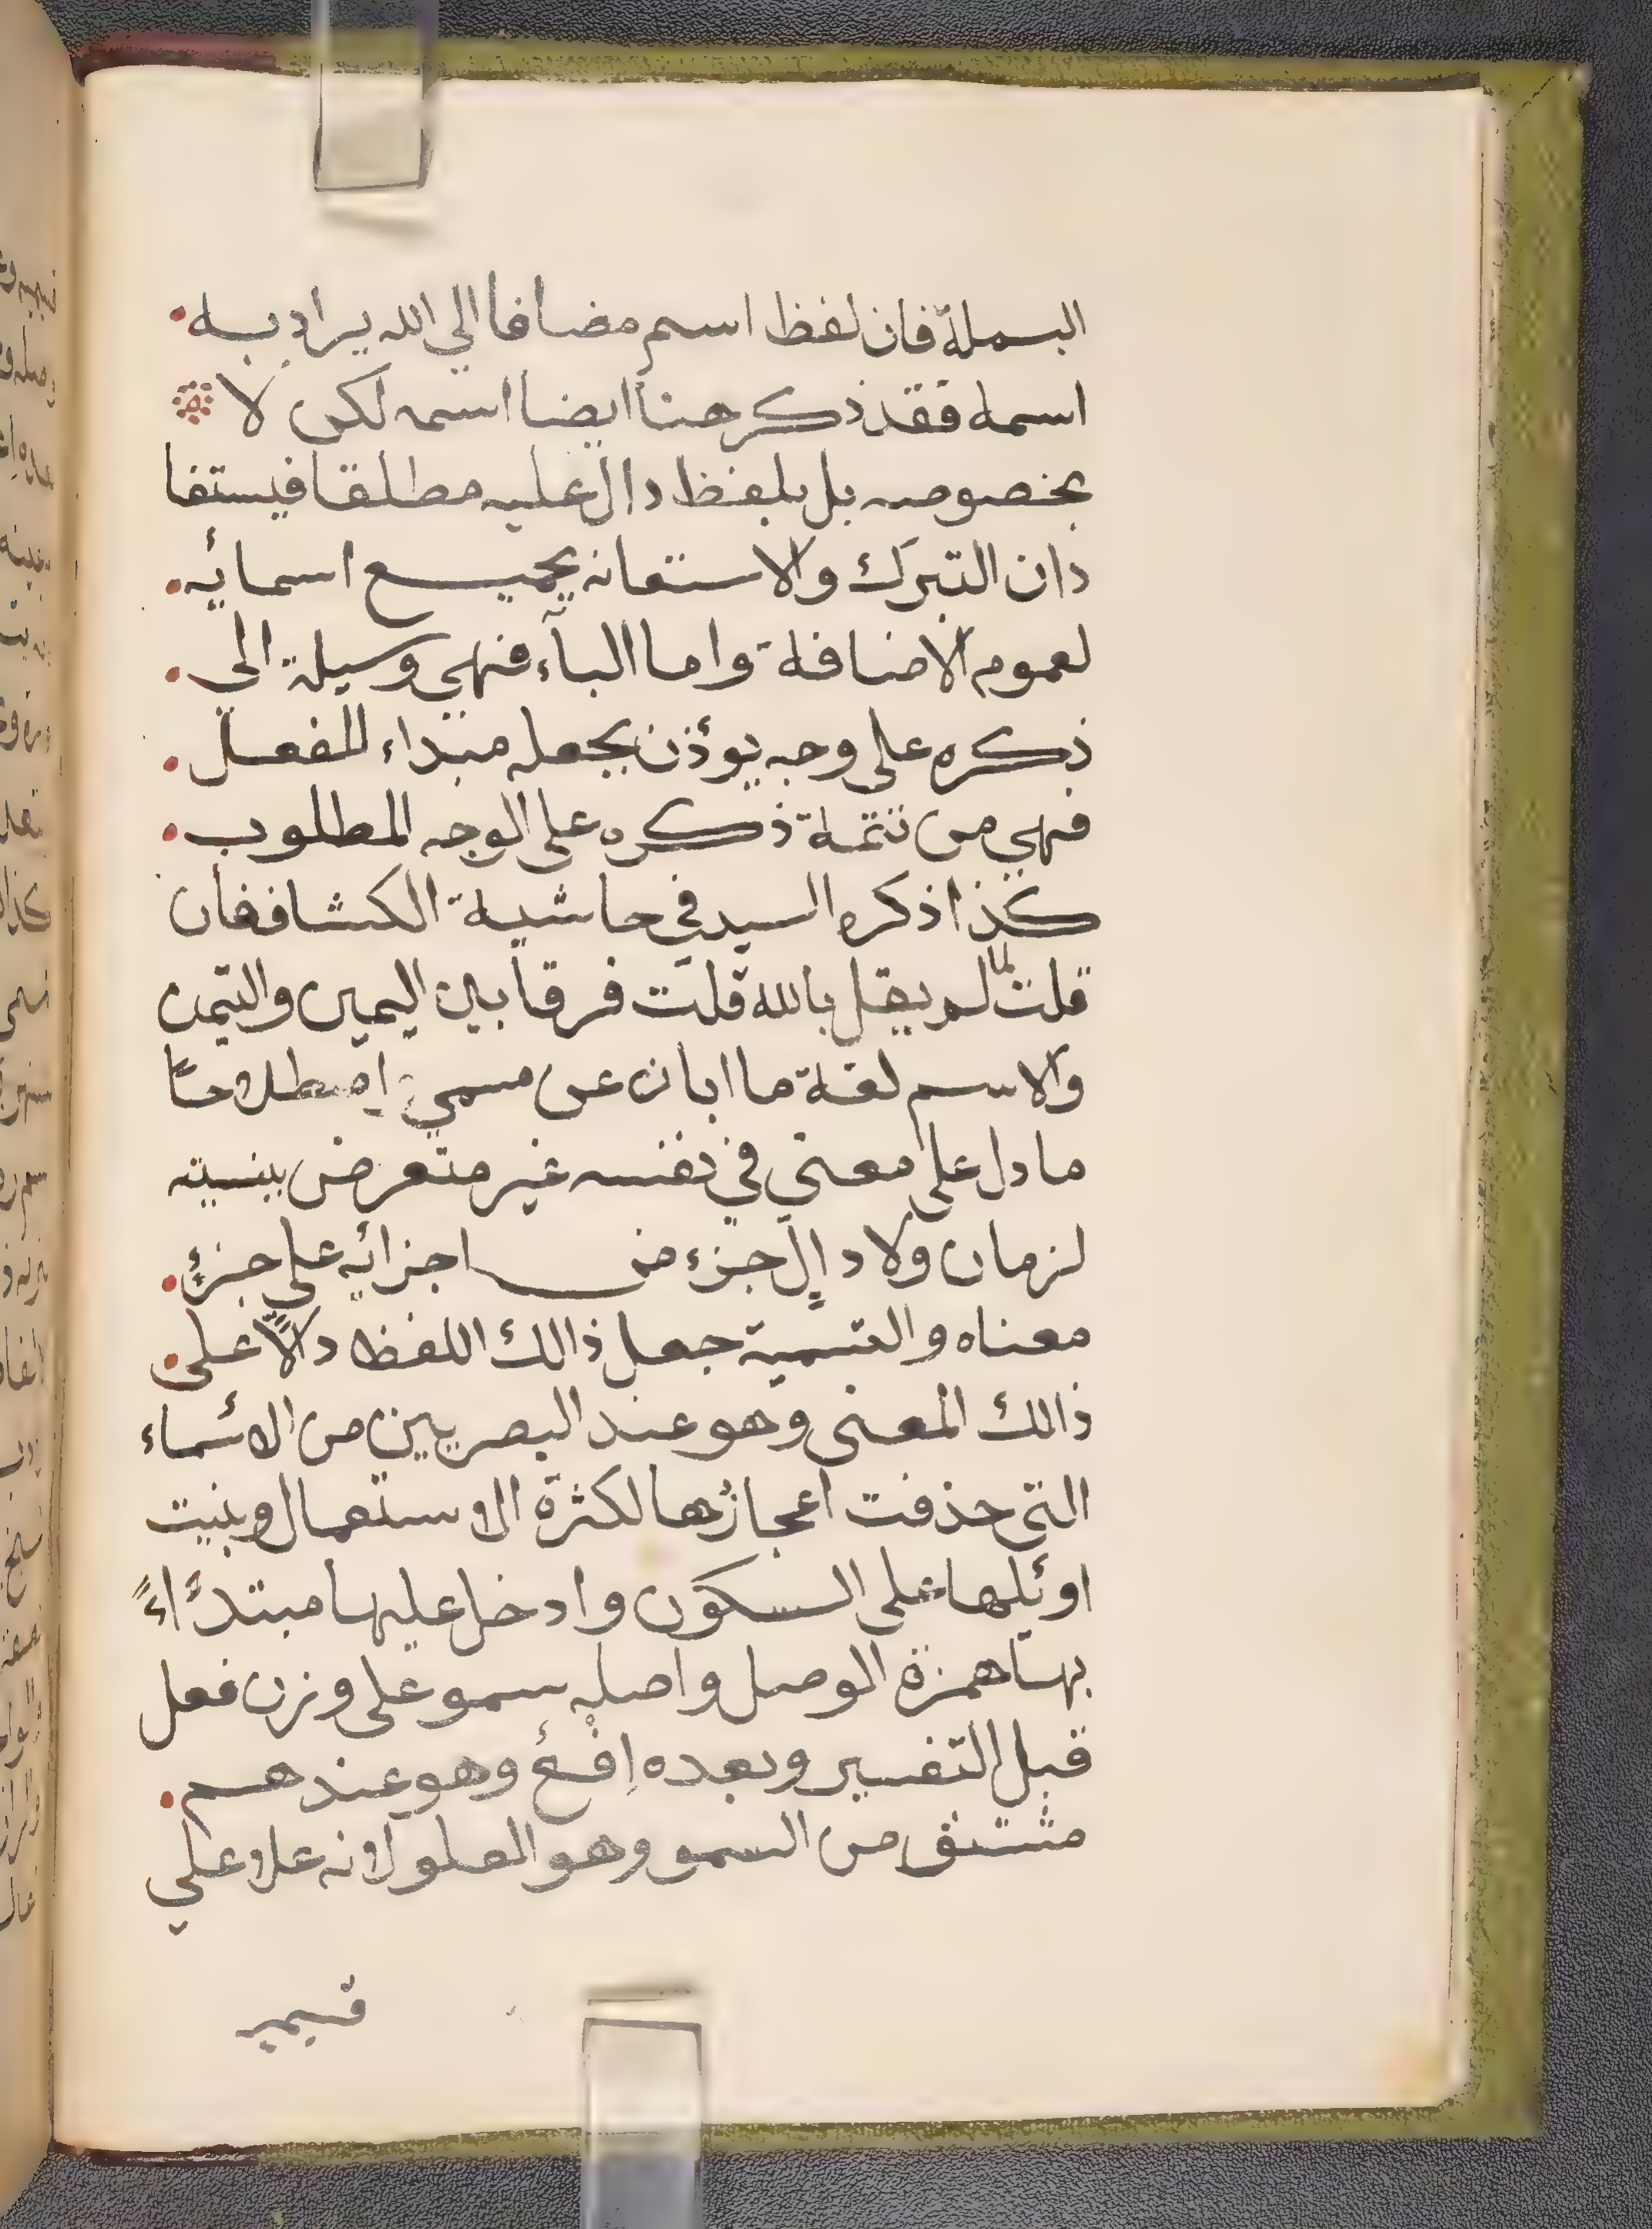 البسملة فان لفظ اسم مضافا الي الله يراد به
اسمه فقد ذكر هنا ايضا اسمه لكن لا
بخصوصه بل بلفظ دال عليه مطلقا فيستفا
دان التبرك والاستعانه بجميع اسمائه
لعموم الاضافة واما الباء فهي وسيلة الي
ذكره على وجه يوؤذن بجعله مبداء للفعل
فهي من تتمة ذكره على الوجه المطلوب
كذا ذكره السيد في حاشية الكشاف فان
قلت لما لم يقل بالله قلت فرقا بين اليمين والتيمن
والاسم لغة ما ابان عن مسمي اصطلاحا
ما دل على معنى في نفسه غير متعرض ببنسيته
لزمان ولا دال جزء من اجزائه على جزئ
معناه والتسمية جعل ذالك اللفظ دالاً على
ذالك المعنى وهو عند البصريين من الاسماء
التى حذفت اعجازُها لكثرة الاستعمال وبنيت
اوئلها على السكون وادخل عليها مبتدَّاءً
بها همزة الوصل واصله سمو على وزن فعل
قبل التغسير وبعده اِفْعٌ وهو عندهم
مشتق من السمو وهو العلو لانه علا على